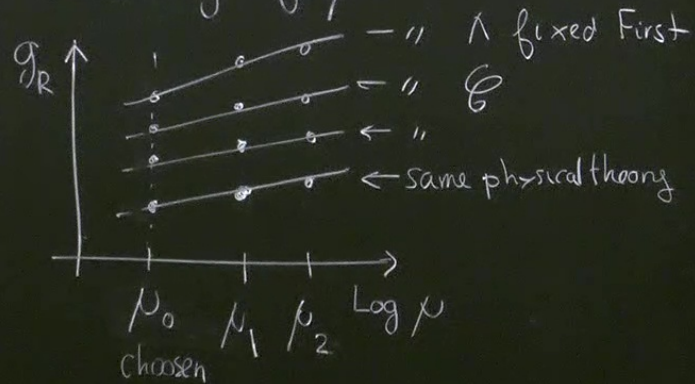 g_R
— " Λ fixed First
← "
← "
← same physical theory
μ_0 μ_1 μ_2 Log μ
choosen